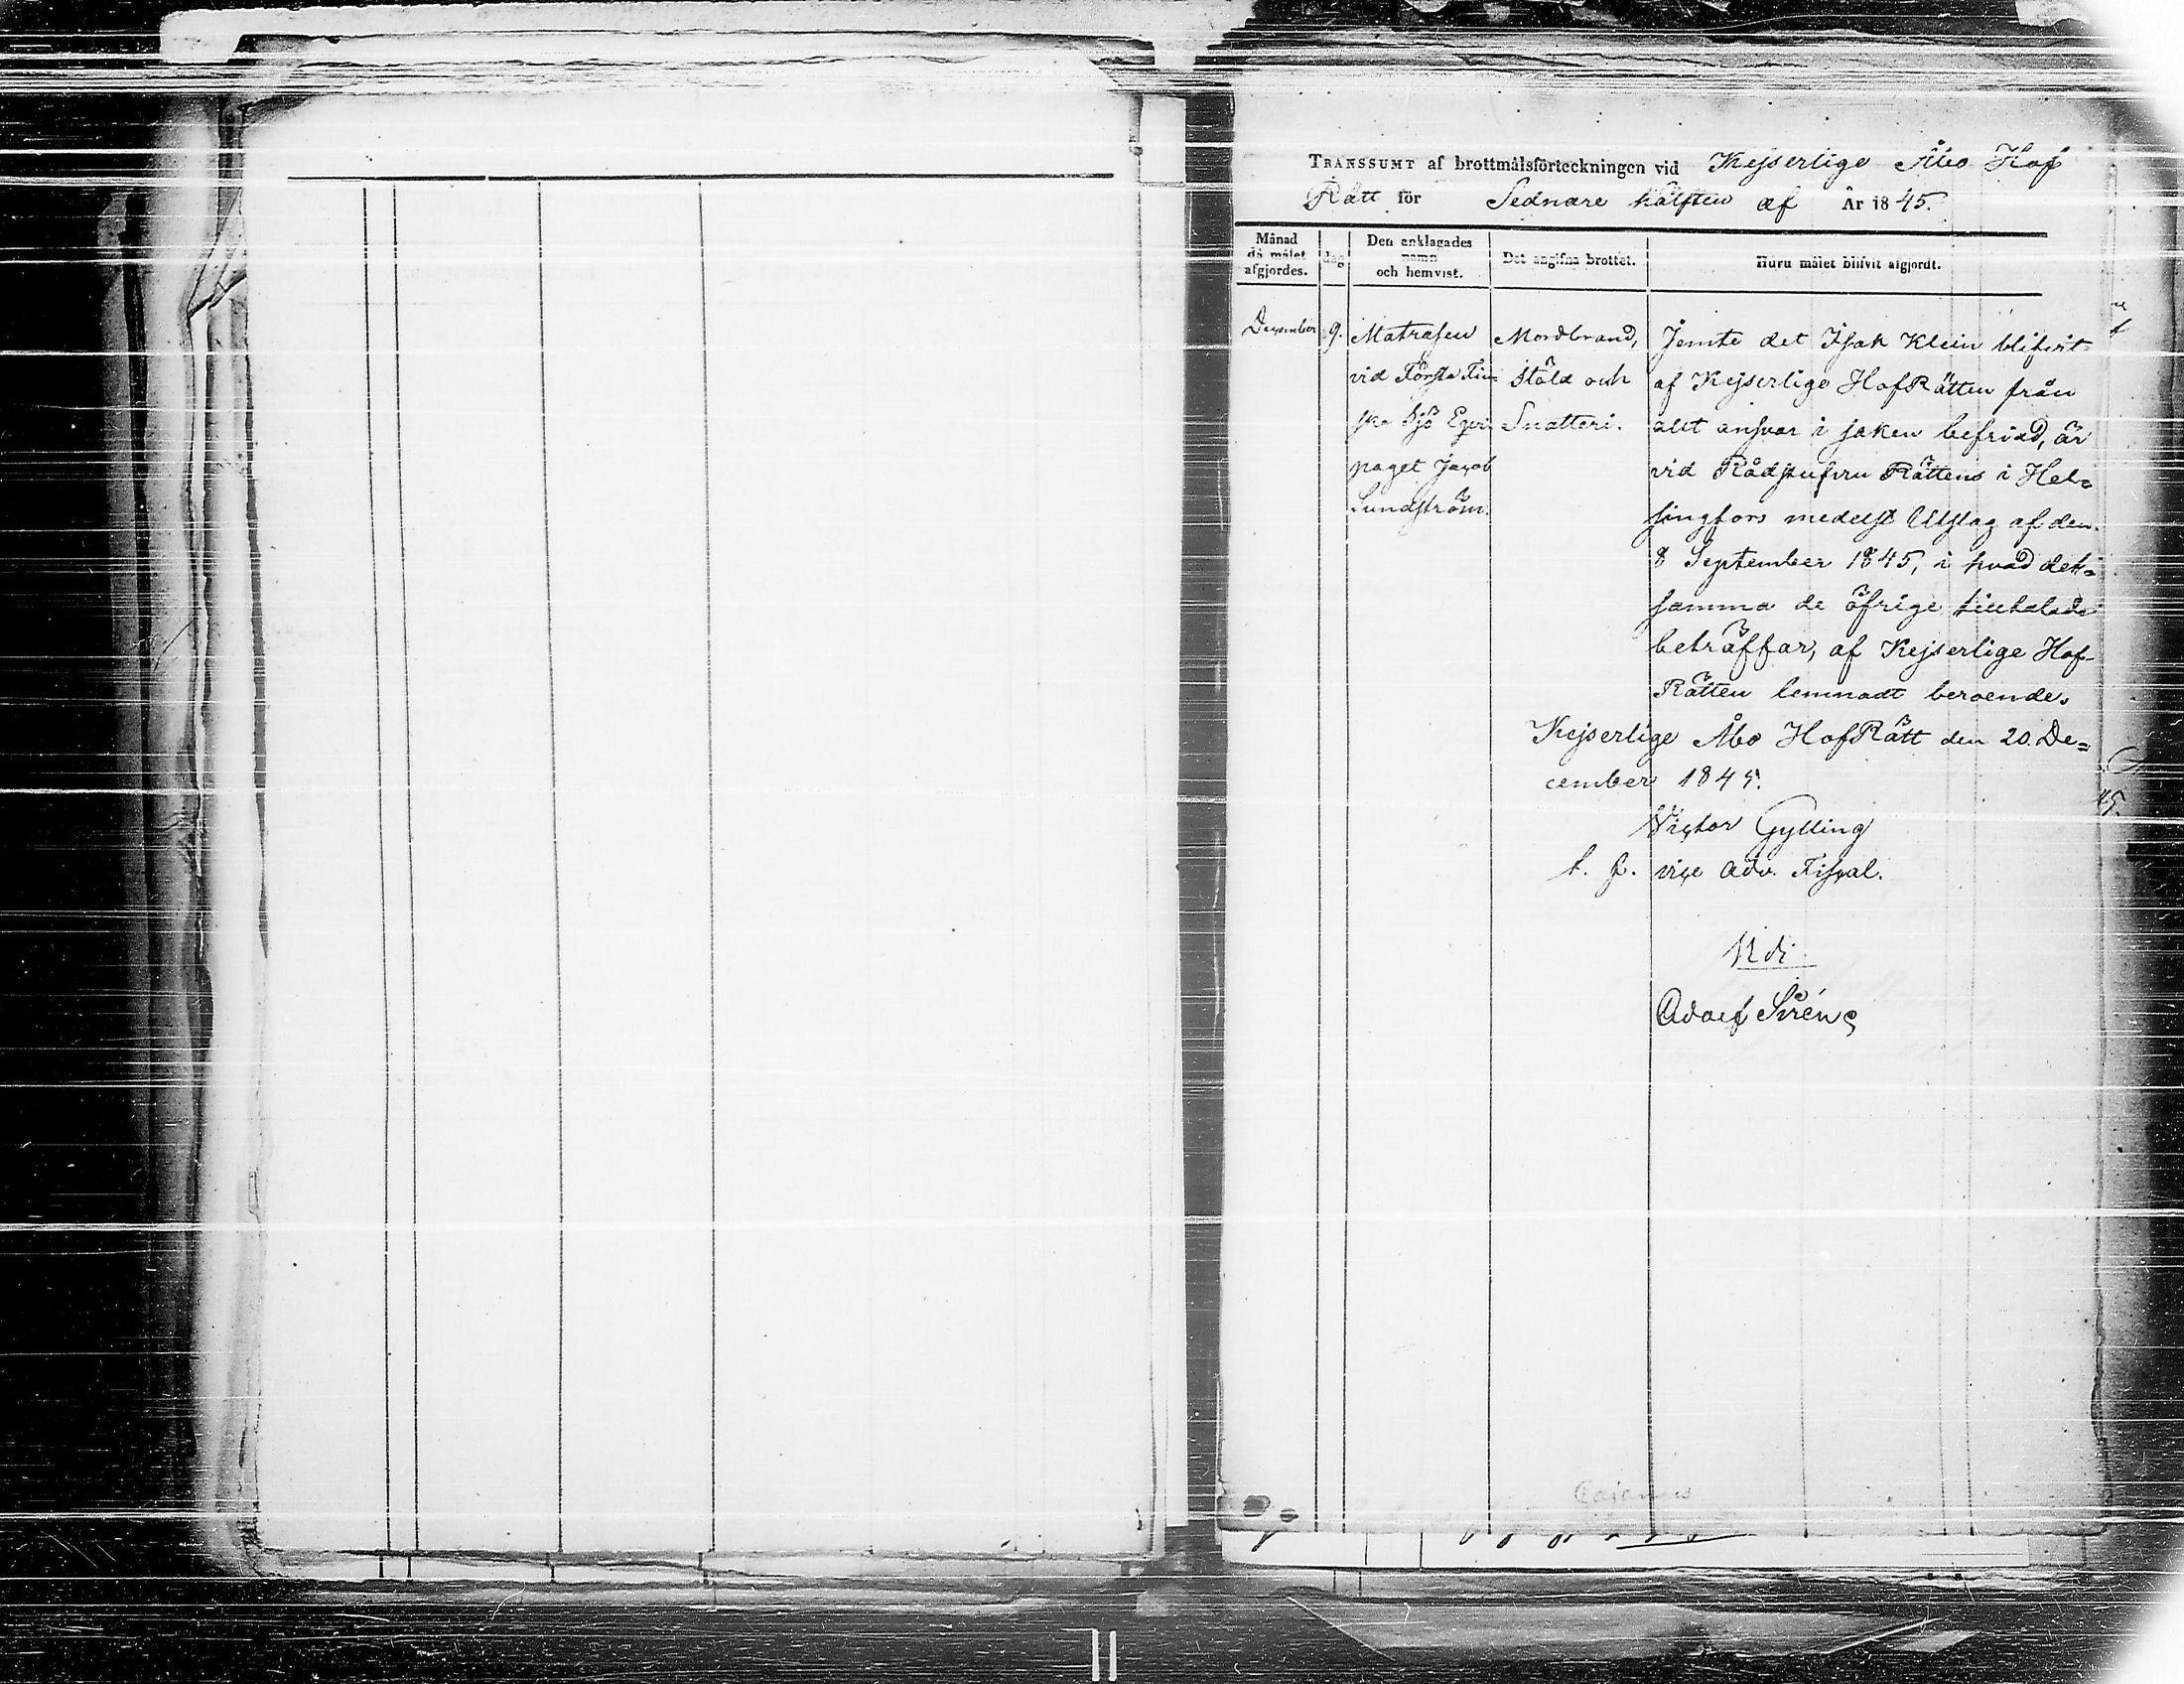 TRANSSUMT af brottmålsförteckningen vid Kejserlige Åbo Hof
Rätt för Sednare hälften af År 1845.
Månad då målet afgjordes.
dag
Den anklagades namn och hemvist.
Det angifna brottet.
Huru målet blifvit afgjordt.
December 9.
Matrosen
vid Första Fin-
ska Sjö Eqvi-
paget Jacob
Sundström.
Mordbrand,
stöld och
Snatteri.
Jemte det Isak Klein blifvit
af Kejserlige HofRätten från
allt ansvar i saken befriad, är
vid RådstufvuRättens i Hel=
singfors medelst Utslag af den
8 September 1845, i hvad det=
samma de öfrige tilltalade
beträffar, af Kejserlige Hof-
Rätten lemnadt beroende.
Kejserlige Åbo HofRätt den 20. De=
cember 1845.
Victor Gylling
t. f. vice Adv. Fiscal.
Adolf Sirén